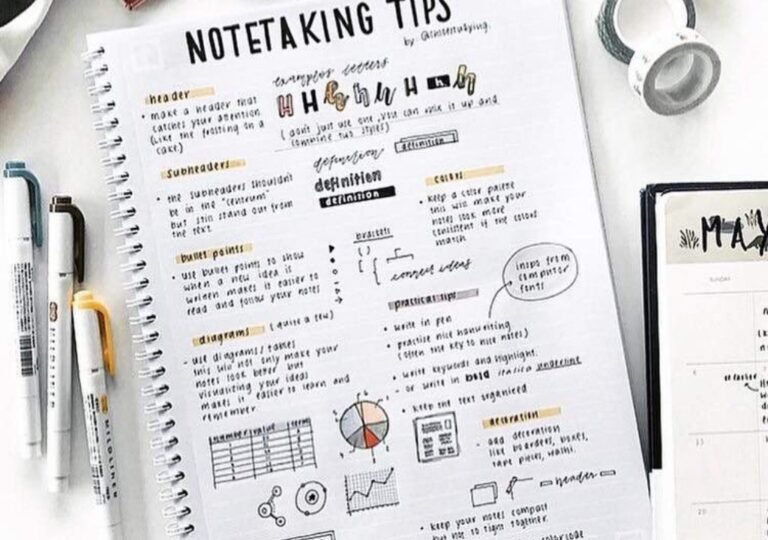 NOTETAKING TIPS
by
header
• make a header that
catches your attention
(like the frosting on a
cake)
examples letters
H H h h H h
(don't just use one, you can mix it up and
combine two styles)
Subheaders
• the subheaders shouldn't
be in the "centrum"
but still stand out from
the text
definition
definition
definition
definition
colors
• keep a color palette
this will make your
notes look more
consistent if the colors
match
bullet points
• use bullet points to show
when a new idea is
written makes it easier to
read and follow your notes
brackets
( )
connect ideas
inspo from
computor
fonts
practical tips
• write in pen
• practise nice handwriting
(often the key to nice notes)
• write keywords and highlight.
- or write in bold italics underline
• keep the text organized
diagrams (quite a few)
- use diagrams/tables
this will not only make your
notes look better but
visualizing your ideas
makes it easier to learn and
remember
number value term
decoration
- add decoration
like boarders, boxes,
tape pieces, washi.
- header -
• keep your notes compact
but not to tight together.
color code
MAY
sunday
6
13
20
MILDLINER
MILDLINER